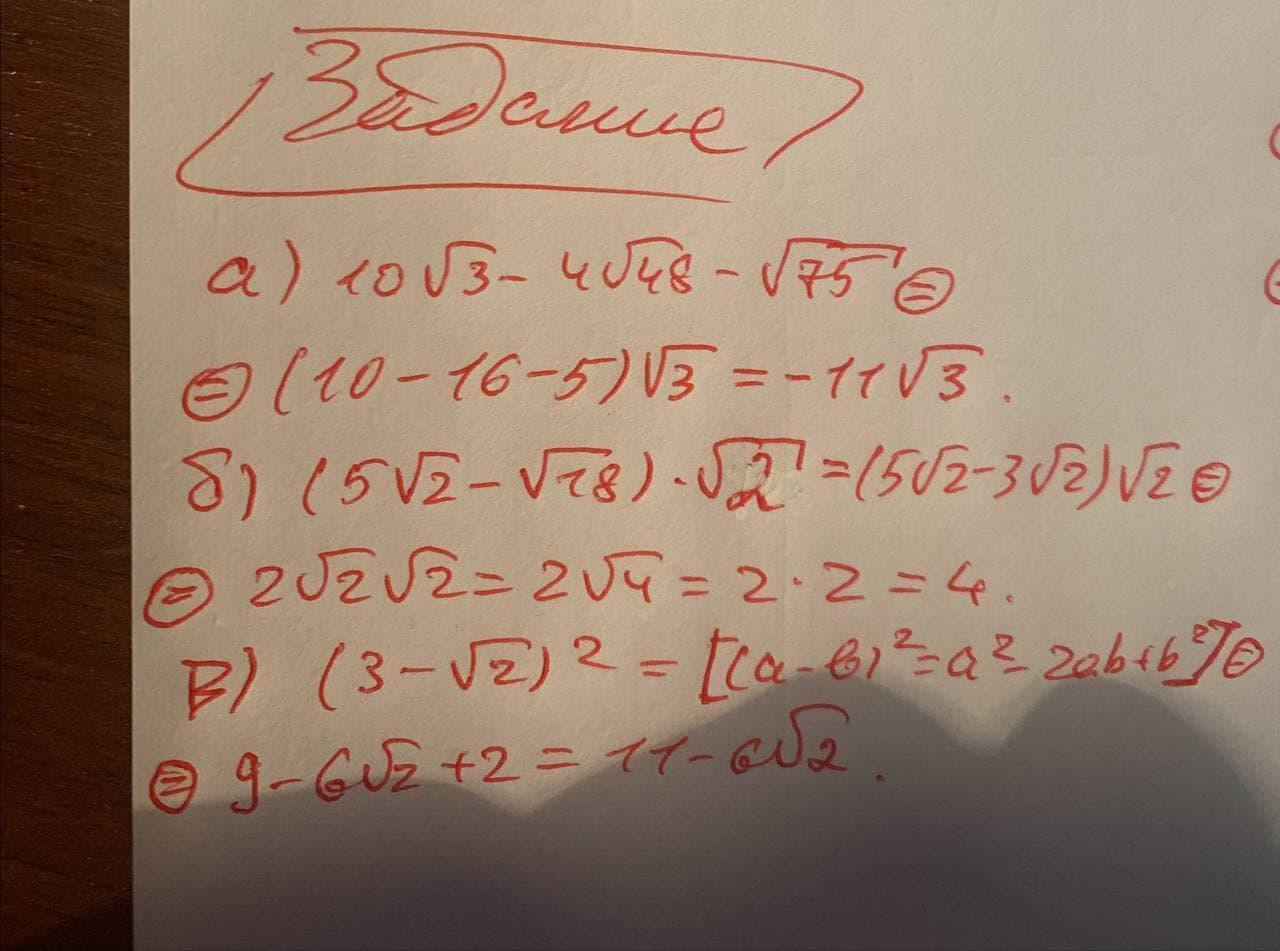 Задание
а) 10√3 - 4√48 - √75 ⊜
⊜ (10 - 16 - 5)√3 = -11√3.
б) (5√2 - √18) · √2 = (5√2 - 3√2)√2 ⊜
⊜ 2√2√2 = 2√4 = 2 · 2 = 4.
В) (3 - √2)² = [(a - b)² = a² - 2ab + b²] ⊜
⊜ 9 - 6√2 + 2 = 11 - 6√2.